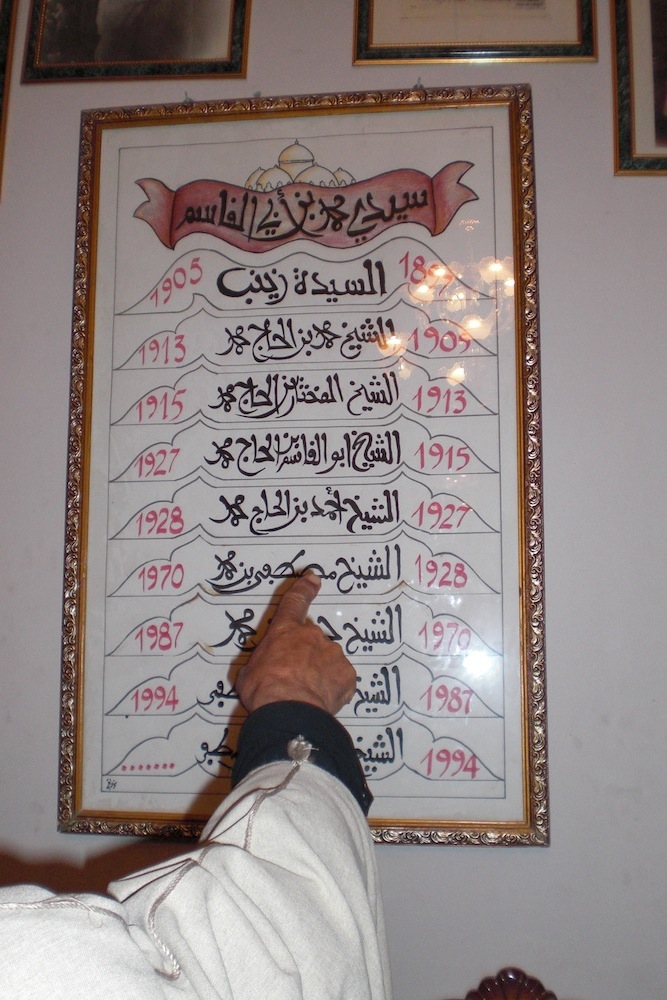 سيدي محمد بن أبي القاسم
السيدة زينب 1905
1905 الشيخ محمد بن الحاج محمد 1913
1913 الشيخ المختار بن الحاج محمد 1915
1915 الشيخ ابو القاسم بن الحاج محمد 1927
1927 الشيخ أحمد بن الحاج محمد 1928
1928 الشيخ مصطفى بن محمد 1970
1970 الشيخ محمد 1987
1987 الشيخ 1994
1994 الشيخ .......